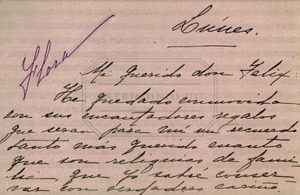 Lúnes.
Flora
Mi querido don Felix
He quedado conmovida
con sus encantadores regalos
que seran para mi un recuerdo
tanto más querido cuanto
que son reliquias de fami-
lia que yo sabre conser-
var con verdadero cariño